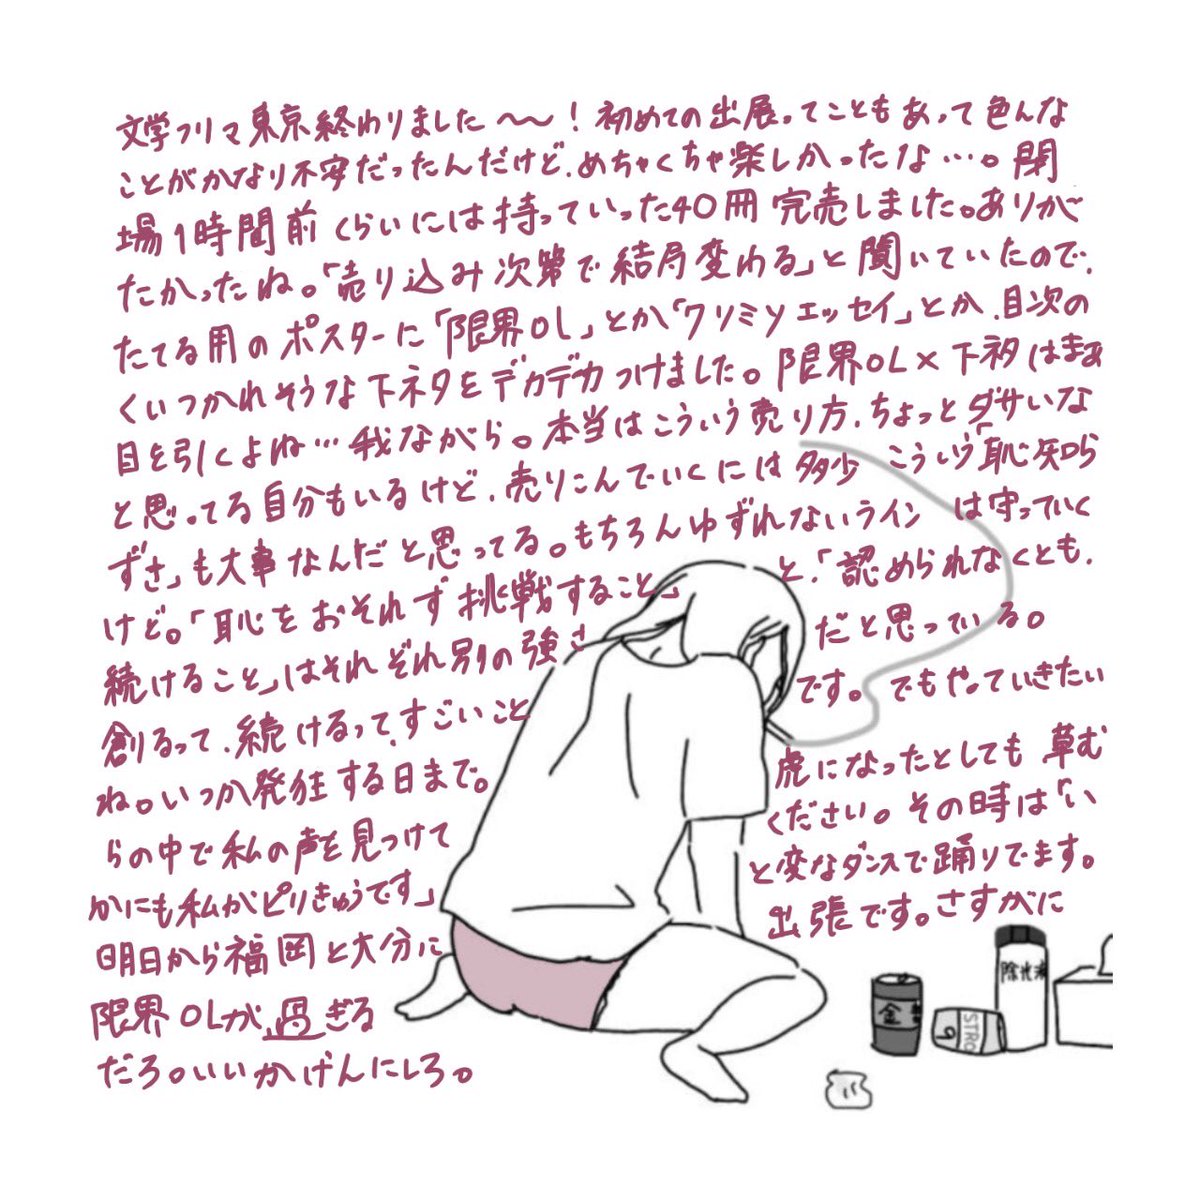 文学フリマ東京終わりました〜〜！初めての出展ってこともあって色んな
ことがかなり不安だったんだけど、めちゃくちゃ楽しかったな…。閉
場1時間前くらいには持っていった40冊完売しました。ありが
たかったね。「売り込み次第で結局変わる」と聞いていたので、
たてる用のポスターに「限界OL」とか「クソミソエッセイ」とか、目次の
くいつかれそうな下ネタをデカデカつけました。限界OL×下ネタはまあ
目を引くよね…我ながら。本当はこういう売り方、ちょっとダサいな
と思ってる自分もいるけど、売りこんでいくには多少こういう「恥知ら
ずさ」も大事なんだと思ってる。もちろんゆずれないラインは守っていく
けど。「恥をおそれず挑戦すること」と、「認められなくとも、
続けること」はそれぞれ別の強さだと思っている。
創るって、続けるって、すごいことです。でもやっていきたい
ね。いつか発狂する日まで。虎になったとしても草む
らの中で私の声を見つけてください。その時は「い
かにも私がピリきゅうです」と変なダンスで踊りでます。
明日から福岡と大分に出張です。さすがに
限界OLが過ぎる
だろ。いいかげんにしろ。
除光液
金
STRO
9